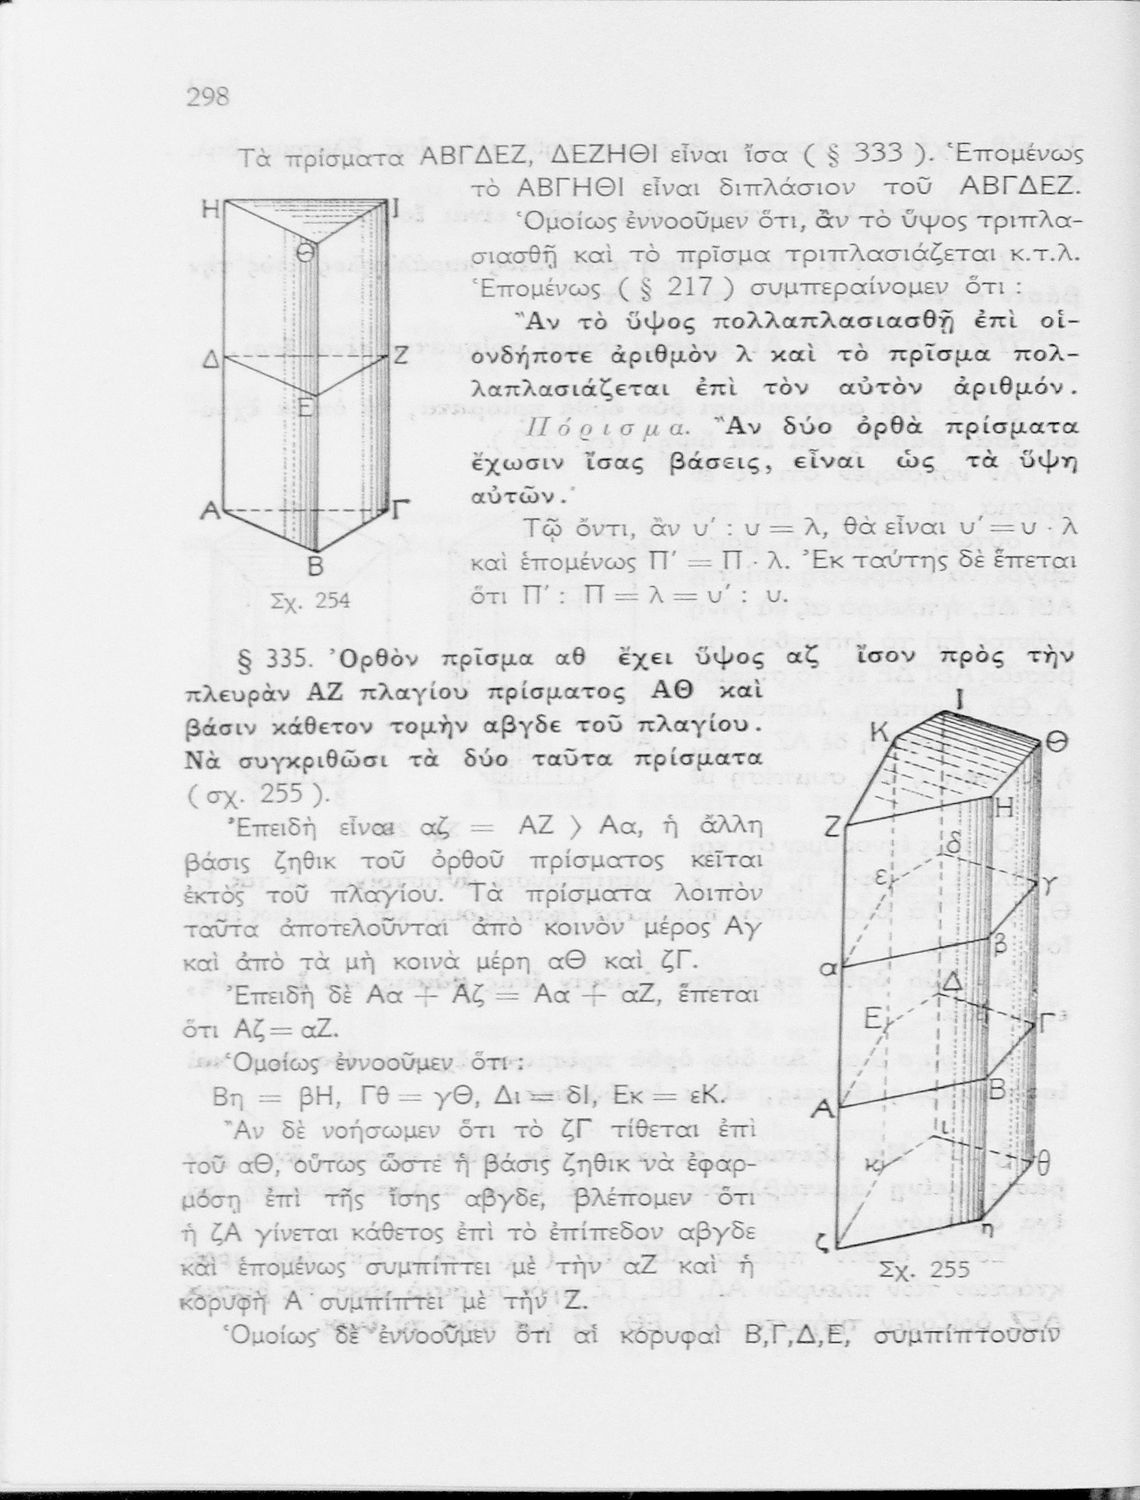 298
Τὰ πρίσματα ΑΒΓΔΕΖ, ΔΕΖΗΘΙ εἶναι ἴσα ( § 333 ). Ἑπομένως
τὸ ΑΒΓΗΘΙ εἶναι διπλάσιον τοῦ ΑΒΓΔΕΖ.
Ὁμοίως ἐννοοῦμεν ὅτι, ἂν τὸ ὕψος τριπλα-
σιασθῇ καὶ τὸ πρῖσμα τριπλασιάζεται κ.τ.λ.
Ἑπομένως ( § 217 ) συμπεραίνομεν ὅτι :
Ἂν τὸ ὕψος πολλαπλασιασθῇ ἐπὶ οἱ-
ονδήποτε ἀριθμὸν λ καὶ τὸ πρῖσμα πολ-
λαπλασιάζεται ἐπὶ τὸν αὐτὸν ἀριθμόν.
Πόρισμα. Ἂν δύο ὀρθὰ πρίσματα
ἔχωσιν ἴσας βάσεις, εἶναι ὡς τὰ ὕψη
αὐτῶν.
Τῷ ὄντι, ἂν υ′ : υ = λ, θὰ εἶναι υ′ = υ · λ
καὶ ἑπομένως Π′ = Π · λ. Ἐκ ταύτης δὲ ἕπεται
ὅτι Π′ : Π = λ = υ′ : υ.
Η Ι
Θ
Δ Ζ
Ε
Α Γ
Β
Σχ. 254
§ 335. Ὀρθὸν πρῖσμα αθ ἔχει ὕψος αζ ἴσον πρὸς τὴν
πλευρὰν ΑΖ πλαγίου πρίσματος ΑΘ καὶ
βάσιν κάθετον τομὴν αβγδε τοῦ πλαγίου.
Νὰ συγκριθῶσι τὰ δύο ταῦτα πρίσματα
( σχ. 255 ).
Ἐπειδὴ εἶναι αζ = ΑΖ 〉 Αα, ἡ ἄλλη
βάσις ζηθικ τοῦ ὀρθοῦ πρίσματος κεῖται
ἐκτὸς τοῦ πλαγίου. Τὰ πρίσματα λοιπὸν
ταῦτα ἀποτελοῦνται ἀπὸ κοινὸν μέρος Αγ
καὶ ἀπὸ τὰ μὴ κοινὰ μέρη αΘ καὶ ζΓ.
Ἐπειδὴ δὲ Αα + Αζ = Αα + αΖ, ἕπεται
ὅτι Αζ = αΖ.
Ὁμοίως ἐννοοῦμεν ὅτι :
Βη = βΗ, Γθ = γΘ, Δι = δΙ, Εκ = εΚ.
Ἂν δὲ νοήσωμεν ὅτι τὸ ζΓ τίθεται ἐπὶ
τοῦ αΘ, οὕτως ὥστε ἡ βάσις ζηθικ νὰ ἐφαρ-
μόσῃ ἐπὶ τῆς ἴσης αβγδε, βλέπομεν ὅτι
ἡ ζΑ γίνεται κάθετος ἐπὶ τὸ ἐπίπεδον αβγδε
καὶ ἑπομένως συμπίπτει μὲ τὴν αΖ καὶ ἡ
κορυφὴ Α συμπίπτει μὲ τὴν Ζ.
Ὁμοίως δὲ ἐννοοῦμεν ὅτι αἱ κορυφαὶ Β,Γ,Δ,Ε, συμπίπτουσιν
Ι
Κ Θ
Η
Ζ
δ
ε γ
β
α
Δ
Ε Γ
Β
Α
ι
κ θ
η
ζ
Σχ. 255